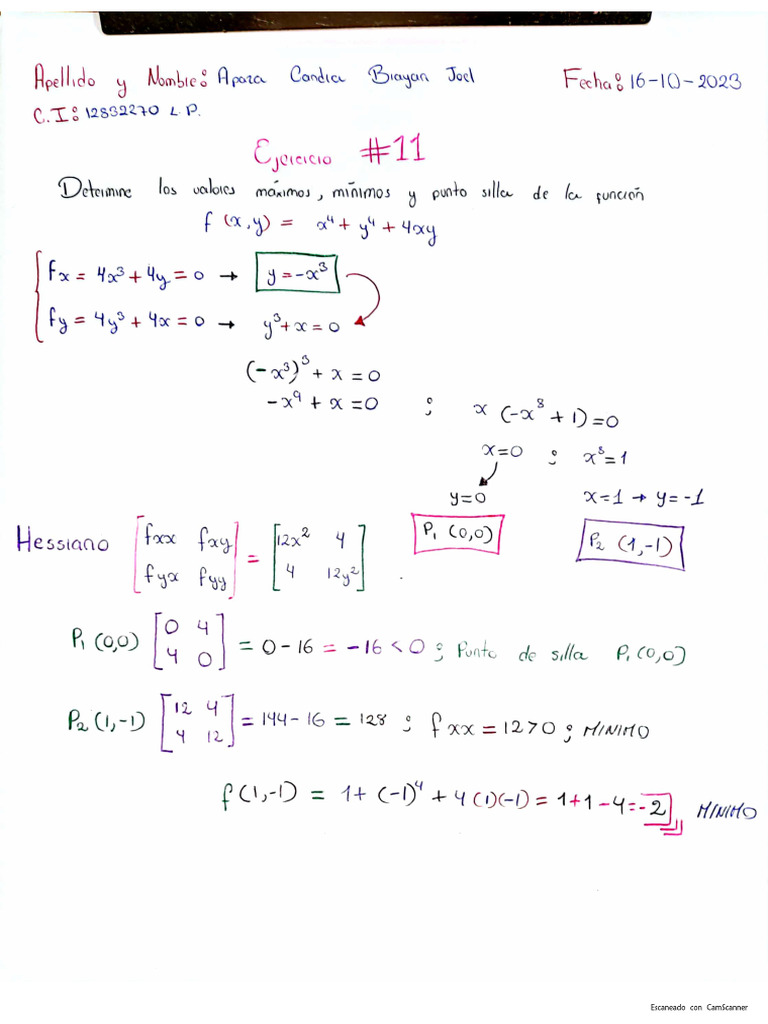 Apellido y Nombre: Apaza Condia Brayan Joel Fecha: 16-10-2023
C.I: 12832270 L.P.
Ejercicio #11
Determine los valores máximos, mínimos y punto silla de la función
f (x,y) = x⁴ + y⁴ + 4xy
fx = 4x³ + 4y = 0 → y = -x³
fy = 4y³ + 4x = 0 → y³ + x = 0
(-x³)³ + x = 0
-x⁹ + x = 0 ; x (-x⁸ + 1) = 0
x=0 ; x⁸ = 1
y=0 x=1 → y=-1
P₁ (0,0) P₂ (1,-1)
Hessiano [fxx fxy] = [12x² 4]
[fyx fyy] [4 12y²]
P₁ (0,0) [0 4] = 0-16 = -16 < 0 ; Punto de silla P₁(0,0)
[4 0]
P₂ (1,-1) [12 4] = 144-16 = 128 ; fxx = 1270 ; MINIMO
[4 12]
f(1,-1) = 1+ (-1)⁴ + 4(1)(-1) = 1+1-4 = -2 MINIMO
Escaneado con CamScanner